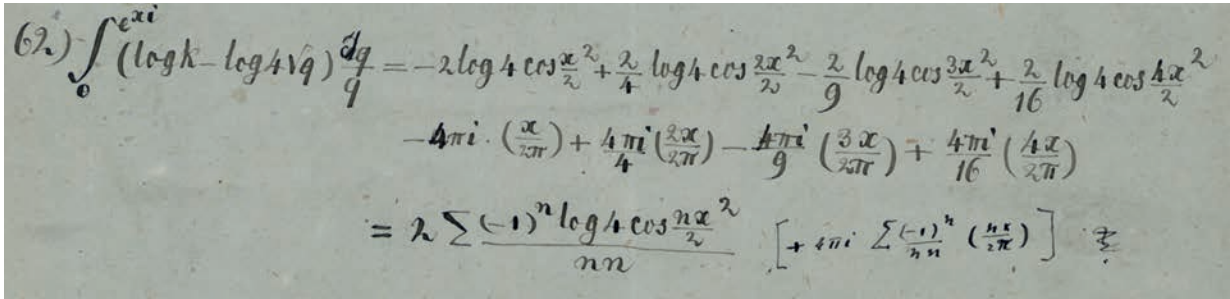 62.) ∫₀^{e^{xi}} (log k − log 4√q) dq/q = −2 log 4 cos x/2 ² + 2/4 log 4 cos 2x/2 ² − 2/9 log 4 cos 3x/2 ² + 2/16 log 4 cos 4x/2 ²
−4πi · (x/2π) + 4πi/4 (2x/2π) − 4πi/9 (3x/2π) + 4πi/16 (4x/2π)
= 2 Σ (−1)^n log 4 cos nx/2 ² / nn [+ 4πi Σ (−1)^n/nn (nx/2π)]